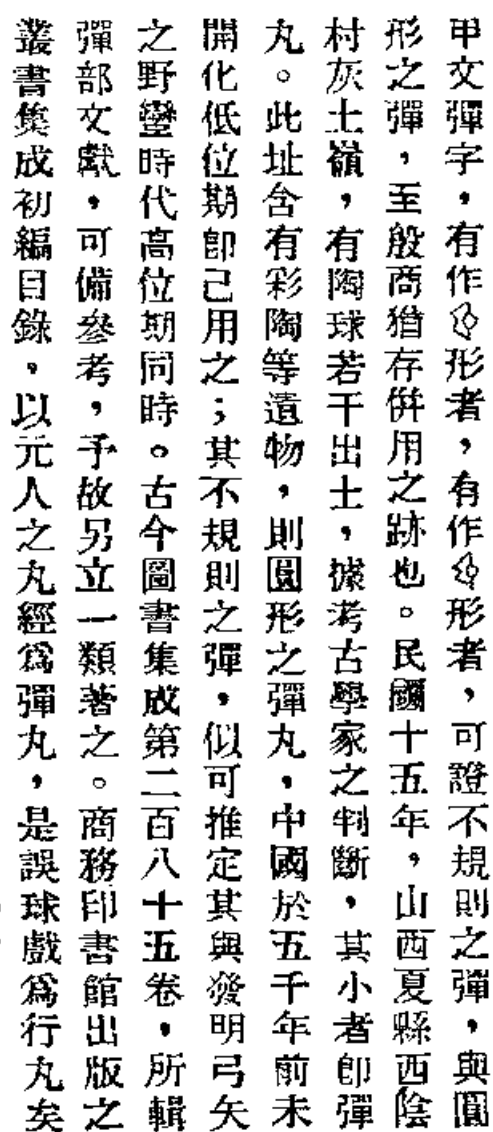 甲文彈字，有作形者，有作形者，可證不規則之彈，與圓
形之彈，至殷商猶存倂用之跡也。民國十五年，山西夏縣西陰
村灰土嶺，有陶球若干出土，據考古學家之判斷，其小者卽彈
丸。此址含有彩陶等遺物，則圓形之彈丸，中國於五千年前未
開化低位期卽己用之；其不規則之彈，似可推定其與發明弓矢
之野蠻時代高位期同時。古今圖書集成第二百八十五卷，所輯
彈部文獻，可備參考，予故另立一類著之。商務印書館出版之
叢書集成初編目錄，以元人之丸經爲彈丸，是誤球戲爲行丸矣